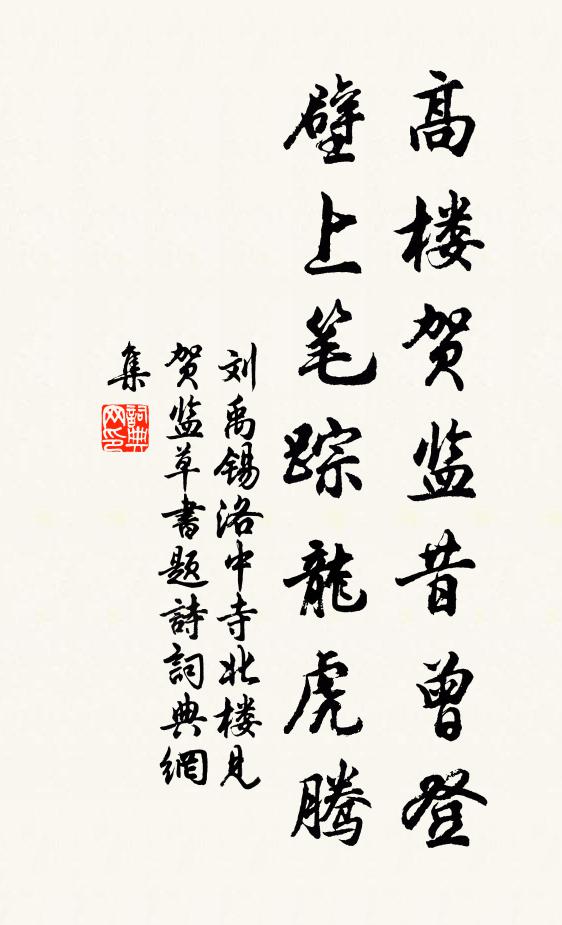 高楼贺监昔曾登
壁上笔踪龍虎腾
刘禹锡洛中寺北楼见
贺监草書题詩詞典網
集
詞典网印